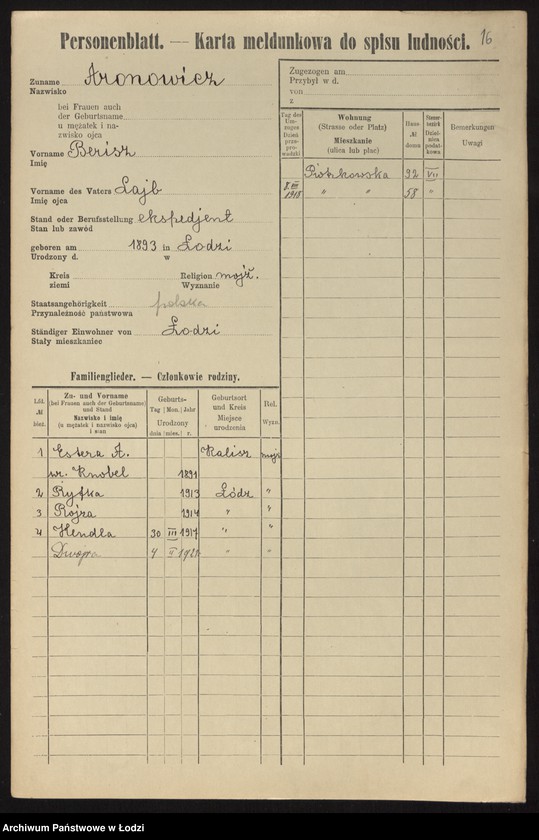 Personenblatt. — Karta meldunkowa do spisu ludności.
16
Zuname Aronowicz
Nazwisko
bei Frauen auch
der Geburtsname
u mężatek i na-
zwisko ojca
Vorname Berisz
Imię
Vorname des Vaters Lajb
Imię ojca
Stand oder Berufsstellung ekspedjent
Stan lub zawód
geboren am 1893 in Łodzi
Urodzony d. w
Kreis Religion mojż.
ziemi Wyznanie
Staatsangehörigkeit polska
Przynależność państwowa
Ständiger Einwohner von Łodzi
Stały mieszkaniec
Zugezogen am
Przybył w d.
von
z
Tag des Um-zuges Dzień prze-pro-wadzki
Wohnung
(Strasse oder Platz)
Mieszkanie
(ulica lub plac)
Haus № domu
Steuer-bezirk Dziel-nica podat-kowa
Bemerkungen
Uwagi
Piotrkowska 92 VII
1918 " " 58 "
Familienglieder. — Członkowie rodziny.
Lfd. № bież.
Zu- und Vorname
(bei Frauen auch der Geburtsname)
und Stand
Nazwisko i imię
(u mężatek i nazwisko ojca)
i stan
Geburts-
Tag Mon. Jahr
Urodzony
dnia mies. r.
Geburtsort
und Kreis
Miejsce
urodzenia
Rel.
Wyzn.
1 Estera A. Kalisz mojż
ur. Knobel 1891
2 Ryfka 1913 Łódź "
3 Rojza 1914 " "
4 Hendla 30 III 1917 " "
Dwojra 4 II 1921 " "
Archiwum Państwowe w Łodzi